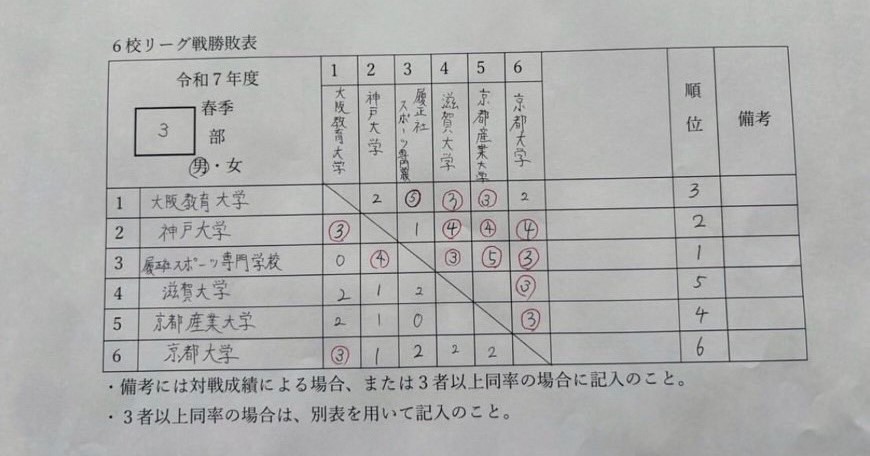 6校リーグ戦勝敗表
令和7年度 春季 3 部 男・女 1 2 3 4 5 6 順位 備考
大阪教育大学 神戸大学 履正社スポーツ専門 滋賀大学 京都産業大学 京都大学
1 大阪教育大学 2 ⑤ ③ ③ 2 3
2 神戸大学 ③ 1 ④ ④ ④ 2
3 スポーツ専門学校 0 ④ ③ ⑤ ③ 1
4 滋賀大学 2 1 2 ③ 5
5 京都産業大学 2 1 0 ③ 4
6 京都大学 ③ 1 2 2 2 6
・備考には対戦成績による場合、または3者以上同率の場合に記入のこと。
・3者以上同率の場合は、別表を用いて記入のこと。